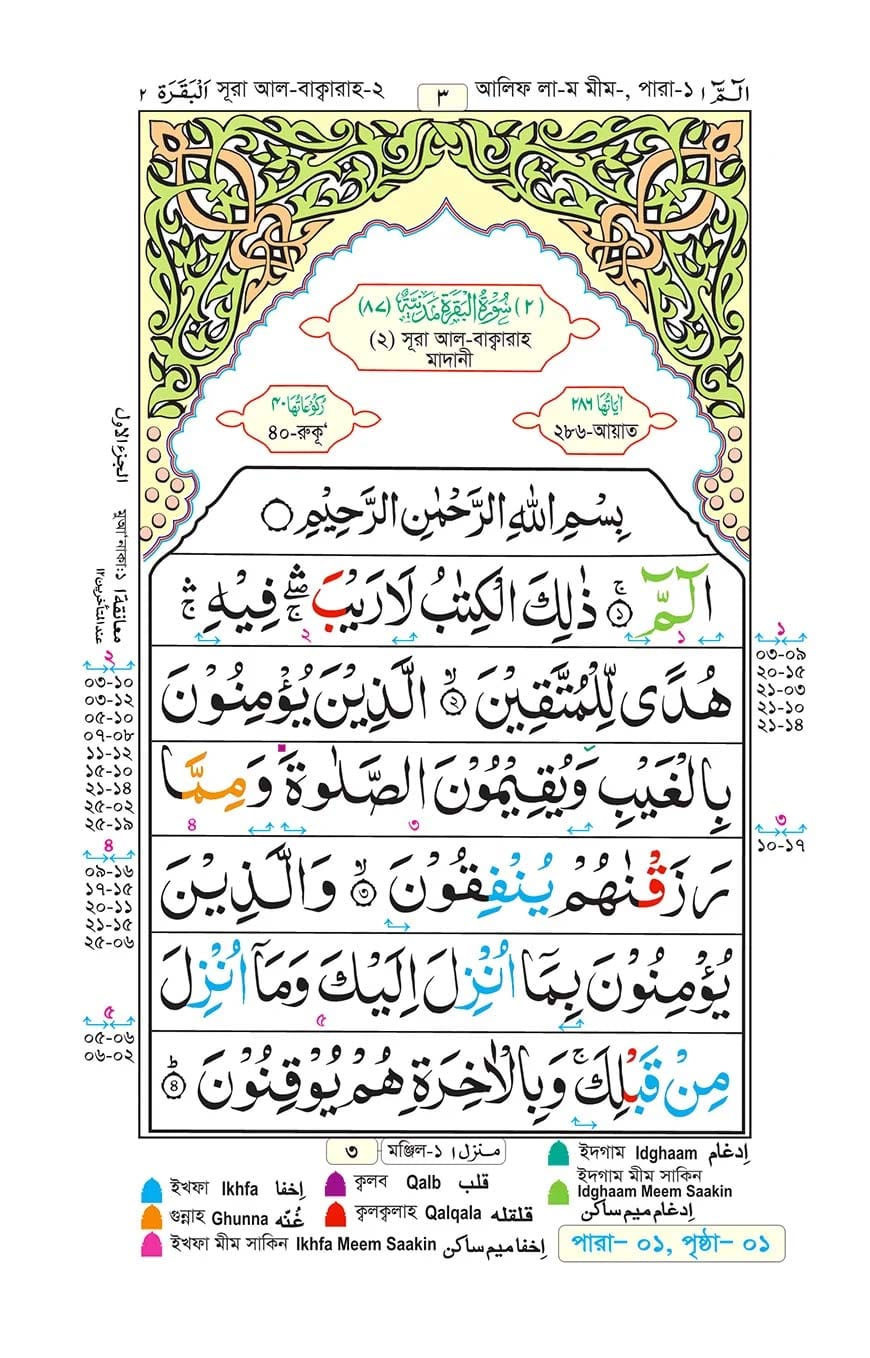 الٓمّٓ ١ আলিফ লা-ম মীম-, পারা-১ ٣ সূরা আল-বাক্বারাহ-২ اَلْبَقَرَة ٢
(٢) سُوْرَةُ الْبَقَرَةِ مَدَنِيَّةٌ (٨٧)
(২) সূরা আল-বাক্বারাহ
মাদানী
اٰيَاتُهَا ٢٨٦
২৮৬-আয়াত
رُكُوْعَاتُهَا ٤٠
৪০-রুকূ‘
بِسْمِ اللهِ الرَّحْمٰنِ الرَّحِيْمِ
الٓمّٓ ۚ ١ ذٰلِكَ الْكِتٰبُ لَا رَيْبَ ۛۖۚ فِيْهِ ۛۚ
هُدًى لِّلْمُتَّقِيْنَ ۙ ٢ الَّذِيْنَ يُؤْمِنُوْنَ
بِالْغَيْبِ وَيُقِيْمُوْنَ الصَّلٰوةَ وَمِمَّا
رَزَقْنٰهُمْ يُنْفِقُوْنَ ۙ ٣ وَالَّذِيْنَ
يُؤْمِنُوْنَ بِمَآ اُنْزِلَ اِلَيْكَ وَمَآ اُنْزِلَ
مِنْ قَبْلِكَ ۚ وَبِالْاٰخِرَةِ هُمْ يُوْقِنُوْنَ ؕ ٤
১
০৩-০৯
২০-১৫
২১-০৩
২১-১০
২১-১৪
৩
১০-১৭
الجزء الاول
মুআ'নাকা:১
معانقة ١
عند المتأخرين ١٢
২
০৩-১০
০৩-১২
০৫-১০
০৭-০৮
১১-১২
১৫-১০
২১-১৪
২৫-০২
২৫-১৯
৪
০৯-১৬
১৭-১৫
২০-১১
২১-১৫
২৫-০৬
৫
০৫-০৬
০৬-০২
৩ মঞ্জিল-১ منزل ١
ইদগাম Idghaam اِدغام
ইদগাম মীম সাকিন
Idghaam Meem Saakin
اِدغام ميم ساكن
ইখফা Ikhfa اِخفا
ক্বলব Qalb قلب
গুন্নাহ Ghunna غُنّه
ক্বলক্বলাহ Qalqala قلقله
ইখফা মীম সাকিন Ikhfa Meem Saakin اِخفا ميم ساكن
পারা- ০১, পৃষ্ঠা- ০১